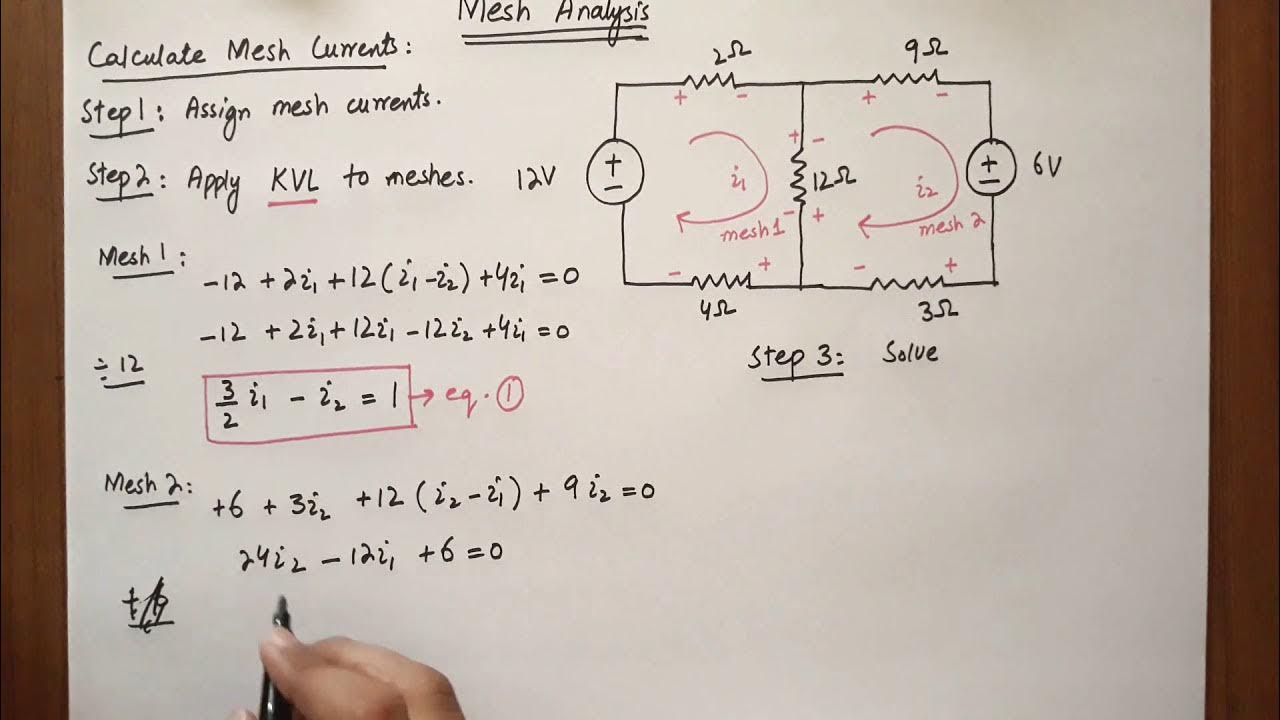 Mesh Analysis
Calculate Mesh Currents:
Step1: Assign mesh currents.
Step2: Apply KVL to meshes.
Mesh 1:
-12 + 2i₁ + 12(i₁-i₂) + 4i₁ = 0
-12 + 2i₁ + 12i₁ - 12i₂ + 4i₁ = 0
÷ 12
3/2 i₁ - i₂ = 1 → eq. ①
Mesh 2:
+6 + 3i₂ + 12(i₂-i₁) + 9i₂ = 0
24i₂ - 12i₁ + 6 = 0
2Ω 9Ω
+ - + -
12V + - + - 12Ω + - 6V
i₁ i₂
- +
mesh 1 mesh 2
- + - +
4Ω 3Ω
Step 3: Solve